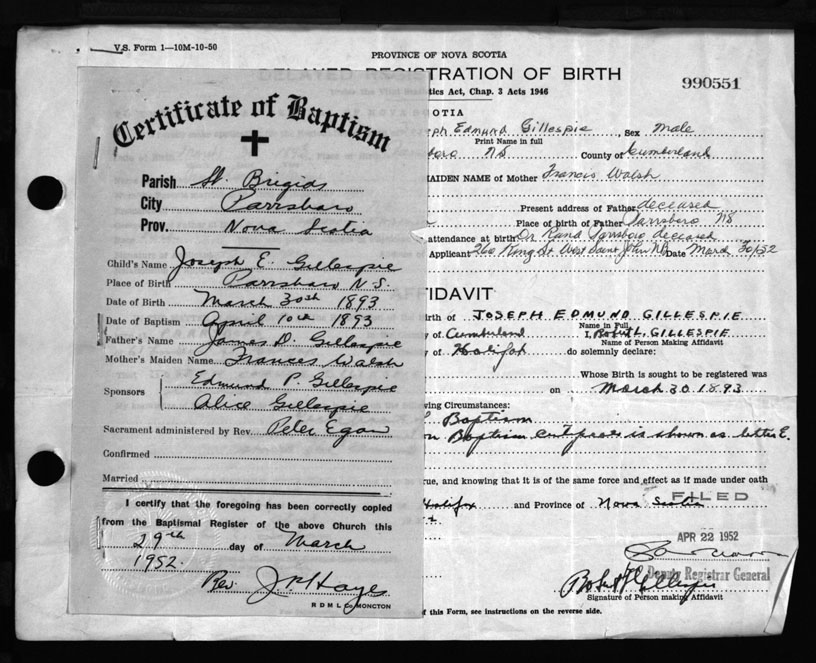 V.S. Form 1—10M-10-50
PROVINCE OF NOVA SCOTIA
DELAYED REGISTRATION OF BIRTH
990551
tics Act, Chap. 3 Acts 1946
OTIA
Certificate of Baptism
Parish St. Brigids
City Parrsboro
Prov. Nova Scotia
Child's Name Joseph E. Gillespie
Place of Birth Parrsboro N.S.
Date of Birth March 30th 1893
Date of Baptism April 10th 1893
Father's Name James D. Gillespie
Mother's Maiden Name Frances Walsh
Sponsors Edmund P. Gillespie
Alice Gillespie
Sacrament administered by Rev. Peter Egan
Confirmed
Married
I certify that the foregoing has been correctly copied
from the Baptismal Register of the above Church this
29th day of March
1952.
Rev. J P Hayes
R D M L Co MONCTON
seph Edmund Gillespie, Sex Male
Print Name in full
sboro NS County of Cumberland
MAIDEN NAME of Mother Francis Walsh
Present address of Father deceased
Place of birth of Father Parrsboro NS
attendance at birth Dr Rand Parrsboro deceased
Applicant 260 King St West Saint John NB Date March 30/52
FFIDAVIT
Birth of JOSEPH EDMUND GILLESPIE
Name in Full
y of Cumberland I, Robert L. GILLESPIE
Name of Person Making Affidavit
of Halifax do solemnly declare:
Whose Birth is sought to be registered was
on March 30 1893
wing Circumstances:
Baptism
on Baptism certificate is shown as letter E.
rue, and knowing that it is of the same force and effect as if made under oath
Halifax and Province of Nova Scotia
FILED
APR 22 1952
Deputy Registrar General
Robert L Gillespie
Signature of Person making Affidavit
of this Form, see instructions on the reverse side.